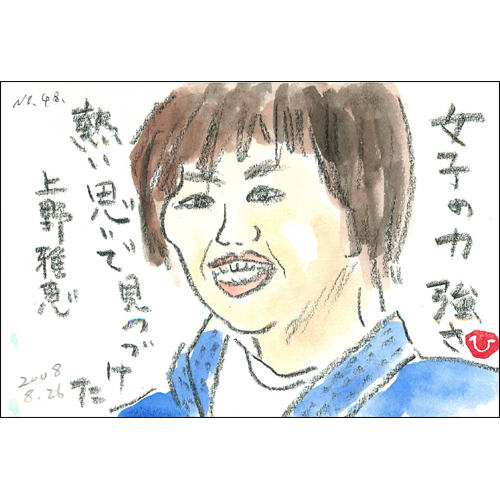 No.48.
女子の力強さ
ひ
熱い思いで見つづけた
上野雅恵
2008
8.26